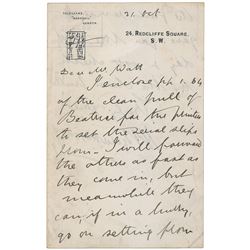 21. Oct
24, REDCLIFFE SQUARE,
S.W.
Dear Mr Watt
I enclose pp 1-64
of the clean pull of
Beatrice for the printers
to set the serial slips
from - I will forward
the others as fast as
they come in, but
meanwhile they
can, if in a hurry,
go on setting from